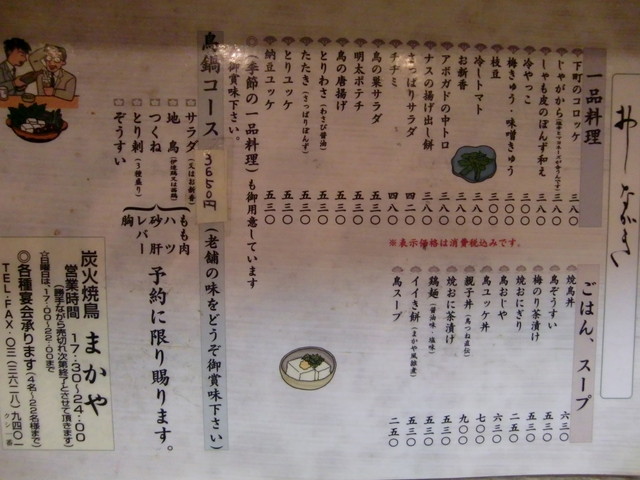 おしながき
一品料理
下町のコロッケ 三八〇
じゃがから 三八〇
しゃも皮のぽんず和え 三八〇
冷やっこ 三〇〇
梅きゅう・味噌きゅう 三〇〇
枝豆 三〇〇
冷しトマト 三八〇
お新香 三八〇
アボガドの中トロ 三八〇
ナスの揚げ出し餅 三八〇
さっぱりサラダ 四二〇
チヂミ 四八〇
鳥の巣サラダ 五三〇
明太ポテチ 五三〇
鳥の唐揚げ 五三〇
たたき(さっぱりぽんず) 五三〇
とりわさ(わさび醤油) 五三〇
とりユッケ 五三〇
納豆ユッケ 五三〇
◎(季節の一品料理)も御用意しています
御賞味下さい。
※表示価格は消費税込みです。
ごはん、スープ
焼鳥丼 六三〇
鳥ぞうすい 五三〇
梅のり茶漬け 五三〇
焼おにぎり 二五〇
鳥おじや 六三〇
鳥ユッケ丼 七〇〇
親子丼(鳥つね直伝) 九〇〇
焼おに茶漬け 五三〇
鶏麺(醤油味・塩味) 五三〇
イイさき餅(まかや風雑煮) 五三〇
鳥スープ 二五〇
鳥鍋コース 3650円 (老舗の味をどうぞ御賞味下さい)
サラダ(又はお新香)
地鳥
つくね
とり刺(3種盛り)
ぞうすい
もも肉
ハツ
砂肝
レバー
胸
予約に限り賜ります。
炭火焼鳥 まかや
営業時間 17:30〜24:00
(勝手ながら売切れ次第終了とさせて頂きます)
☆日曜は、17:00〜22:00まで
◎各種宴会承ります(4名〜22名様まで)
TEL・FAX・〇三(三六二八)九四〇一